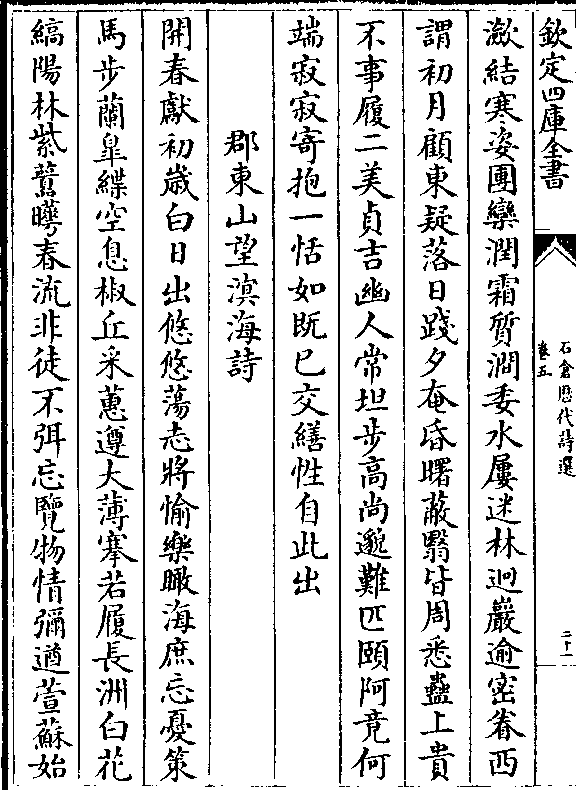 欽定四庫全書
石倉歷代詩選
卷五
二十一
瀲結寒姿團欒潤霜質澗委水屢迷林迥巖逾密眷西
謂初月顧東疑落日踐夕奄昏曙蔽翳皆周悉蠱上貴
不事履二美貞吉幽人常坦步高尚邈難匹頤阿竟何
端寂寂寄抱一恬如既已交繕性自此出
郡東山望溟海詩
開春獻初歲白日出悠悠蕩志將愉樂瞰海庶忘憂策
馬步蘭皐緤空息椒丘采蕙遵大薄搴若履長洲白花
縞陽林紫虈曄春流非徒不弭忘覽物情彌遒萱蘇始